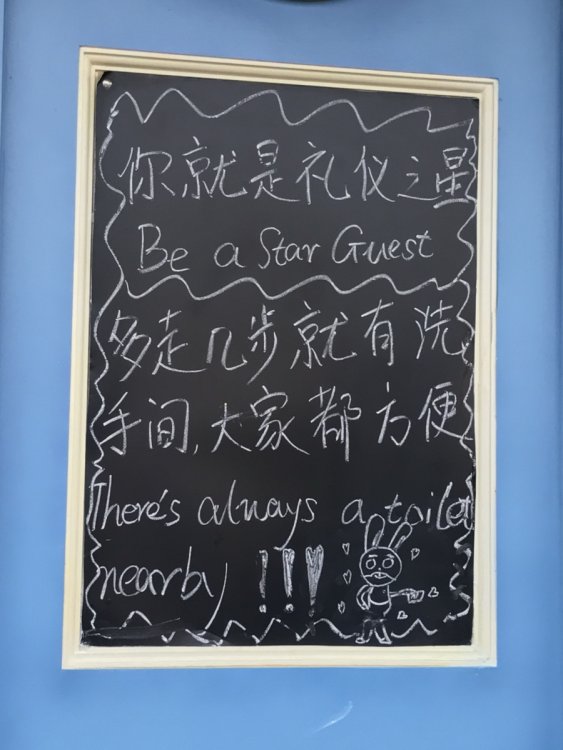 你就是礼仪之星
Be a Star Guest
多走几步就有洗
手间,大家都方便
There's always a toilet
nearby !!!